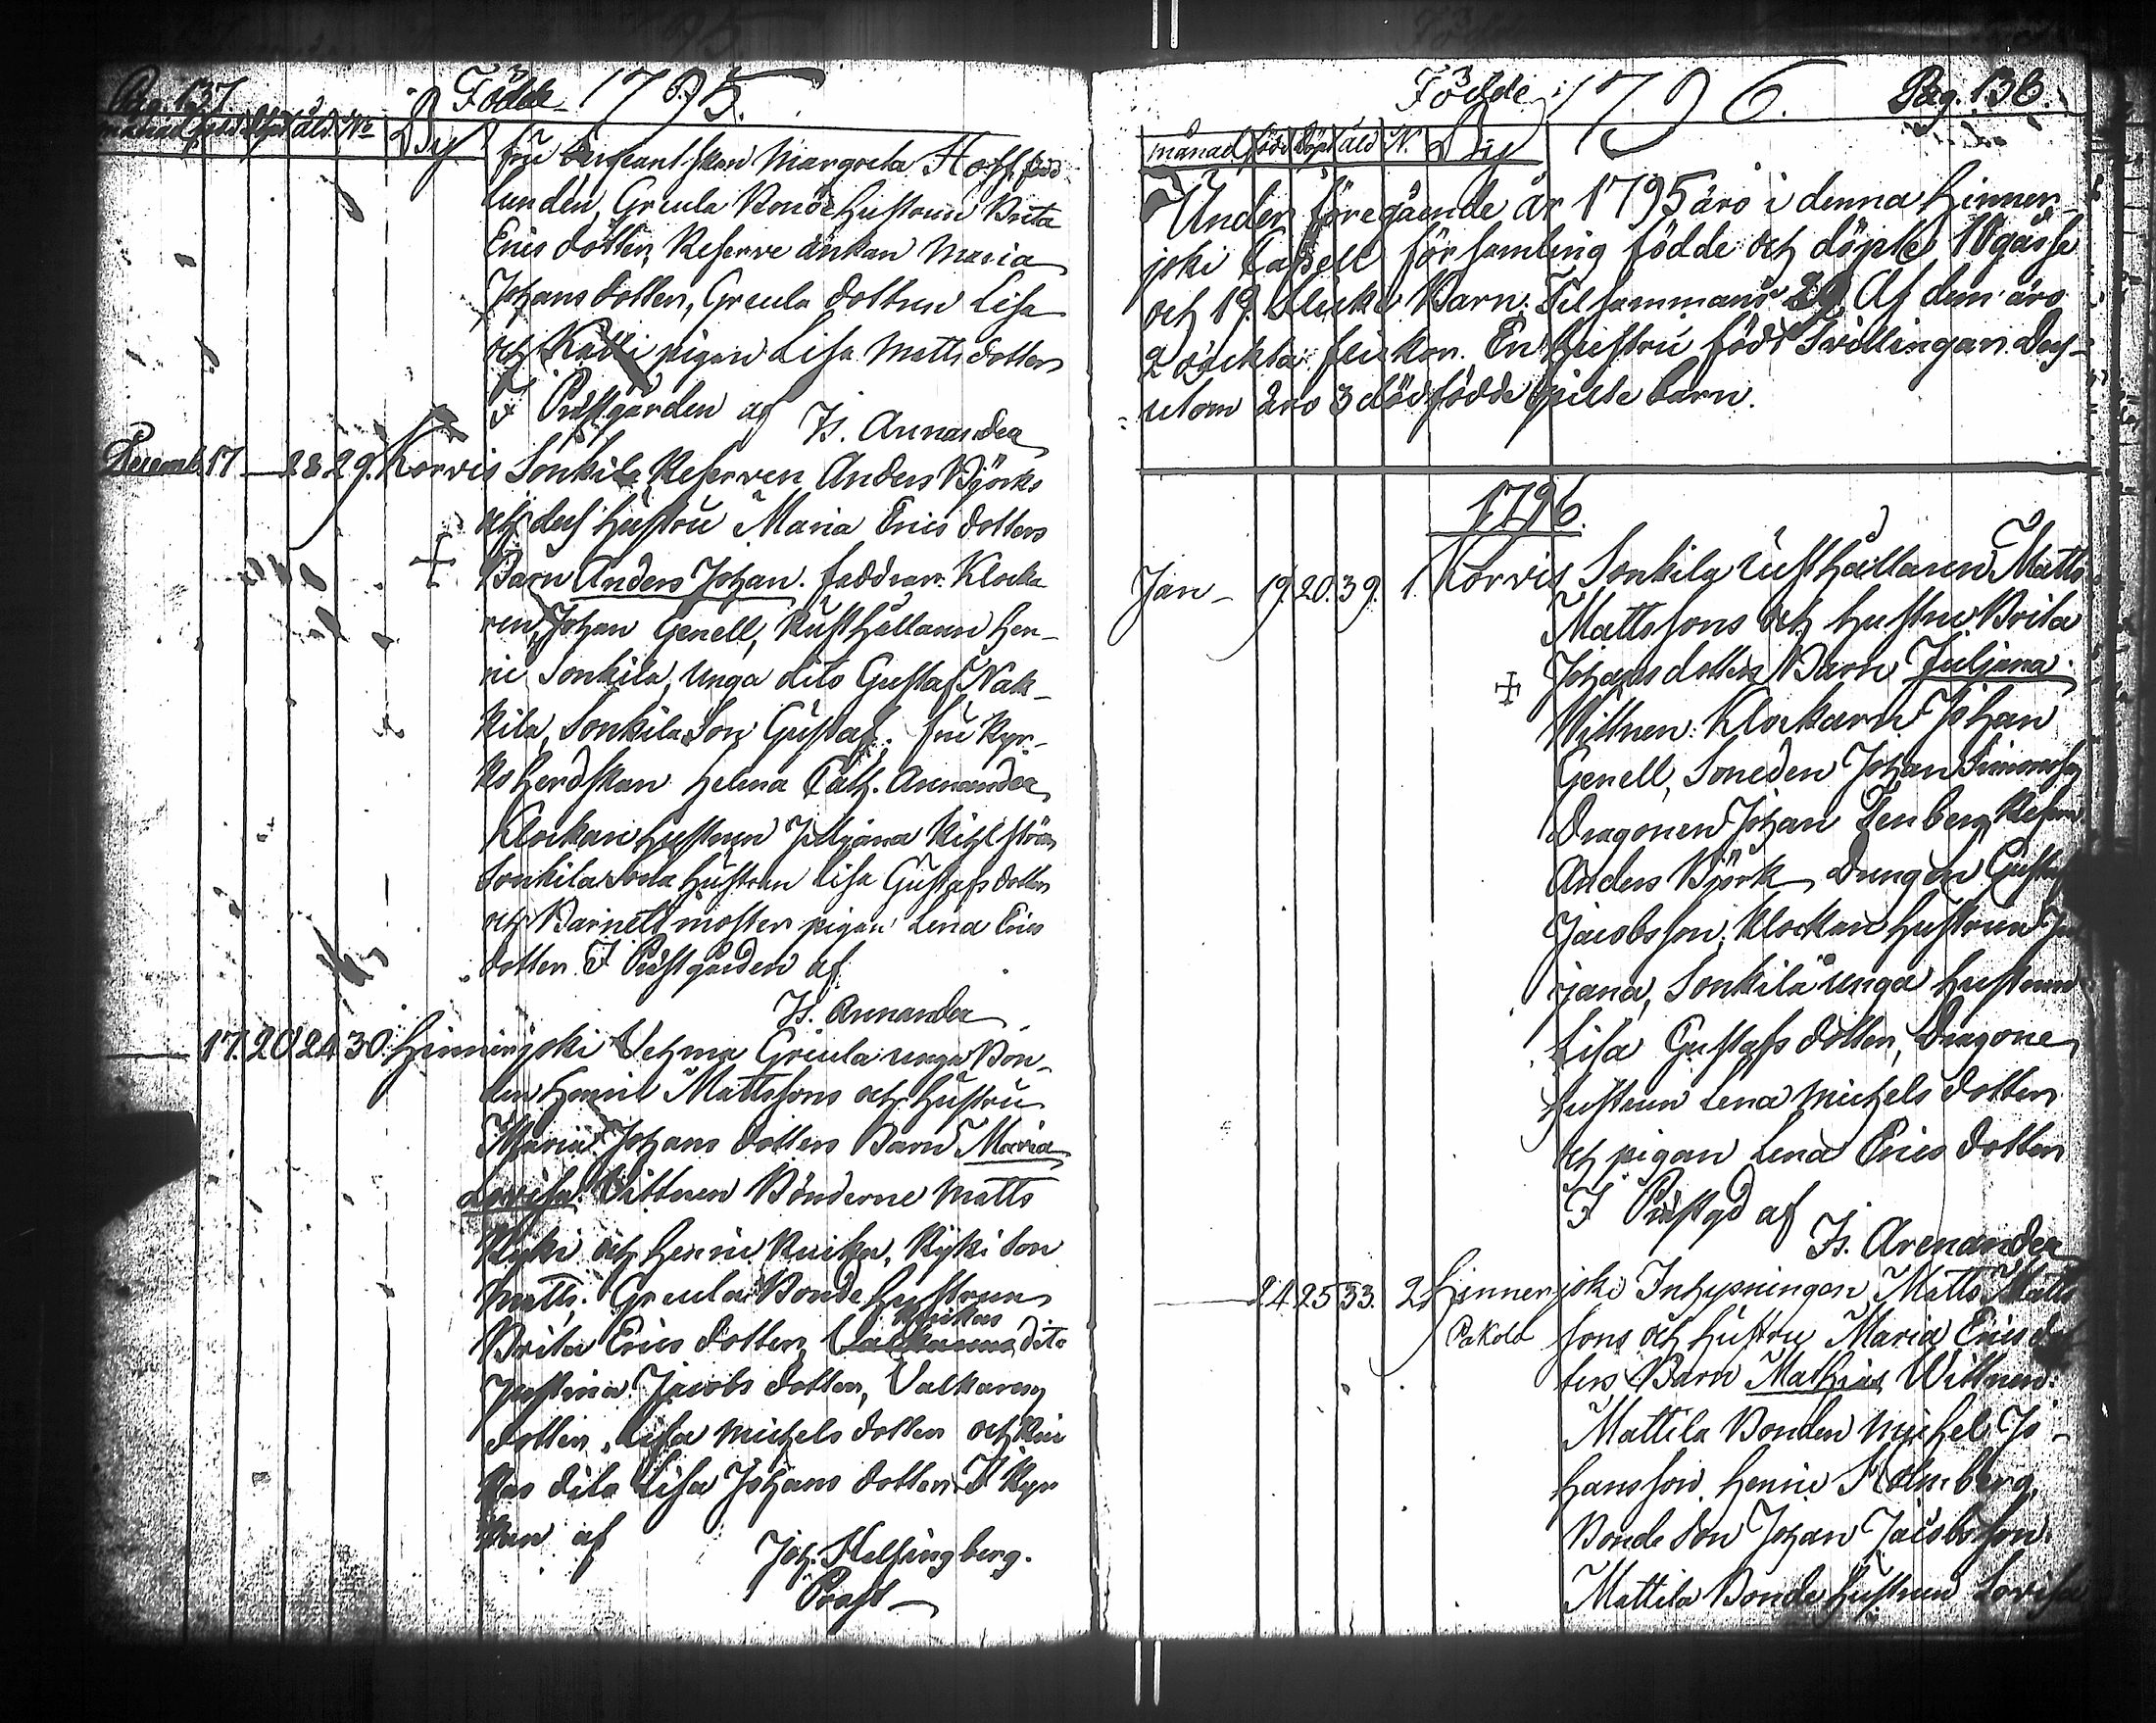 Pag. 137
Födde 1795.
månad född döpt åld. No By
fru Sergeantskan Margreta Hoff, född
Lunden, Greula Bondehustrun Brita
Erics dotter, Reserve änkan Maria
Johans dotter, Greula dottren Lisa
och pigan Lisa Matts dotter
I Prästgården af Is. Arenander
Decemb. 17 — 28 29. Korvis Sonkila Reserven Anders Björks
och dess hustru Maria Erics dotters
Barn Anders Johan. faddrar: Klocka
ren Johan Genell, Rusthållaren Hen-
ric Sonkila, unga dito Gustaf Nak-
kila, Sonkila Son Gustaf. fru Kyr-
koherdskan Helena Cath. Arenander
Klockar hustrun Juliana
Sonkila sona hustrun Lisa Gustafs dotter
och Barnets moster pigan Lena Erics
dotter. I Prästgården af
Is. Arenander
— 17. 20 24 30. Hinnerjoki Vehma Greula unga Bon-
den Henric Mattssons och hustru
Maria Johans dotters Barn Maria
Lovisa. Vittnen Bönderne Matts
Kyki och Henric Ruika, Kyki Son
Matts. Greula Bonde hustrun
Brita Erics dotter, Ruikas dito
Justina Jacobs dotter, Valkama
dotter, Lisa Michels dotter och Rui
kas dito Lisa Johans dotter. I Kyr
kan af
Joh. Helsingberg.
Prost
Födde 1796. Pag. 138.
månad född döpt åld N. By
Under föregående år 1795 äro i denna Hinner-
joki Capell församling födde och döpte 10 gåsse
och 19. flicke Barn. Tilsammans 29. Af dem äro
2 oäckta flickor. En hustru födt Tvillingar. Dess-
utom äro 3 dödfödde barn.
1796.
Jan — 19. 20. 39. 1. Korvis Sonkila Rusthållaren Matts
Mattssons och hustru Brita
Johans dotters Barn Juljana.
Vittnen: Klockaren Johan
Genell, Soneden Johan Simonsson
Dragonen Johan Tenberg, Reserv
Anders Björk, Drengen Gustaf
Jacobsson, Klockar hustrun Ju
jana, Sonkila unga hustrun
Lisa Gustafs dotter, Dragone
hustrun Lena Michels dotter
och pigan Lena Erics dotter
I Prästgd af
Is. Arenander
— 24 25 33. 2. Hinnerjoki Inhysningen Matts Matts
Pakola sons och hustru Maria Erics dot
ters Barn Mathias Wittnen:
Mattila Bonden Michel Jo-
hansson, Henric Holmberg,
Bonde Son Johan Jacobsson.
Mattila Bonde hustrun Lovisa